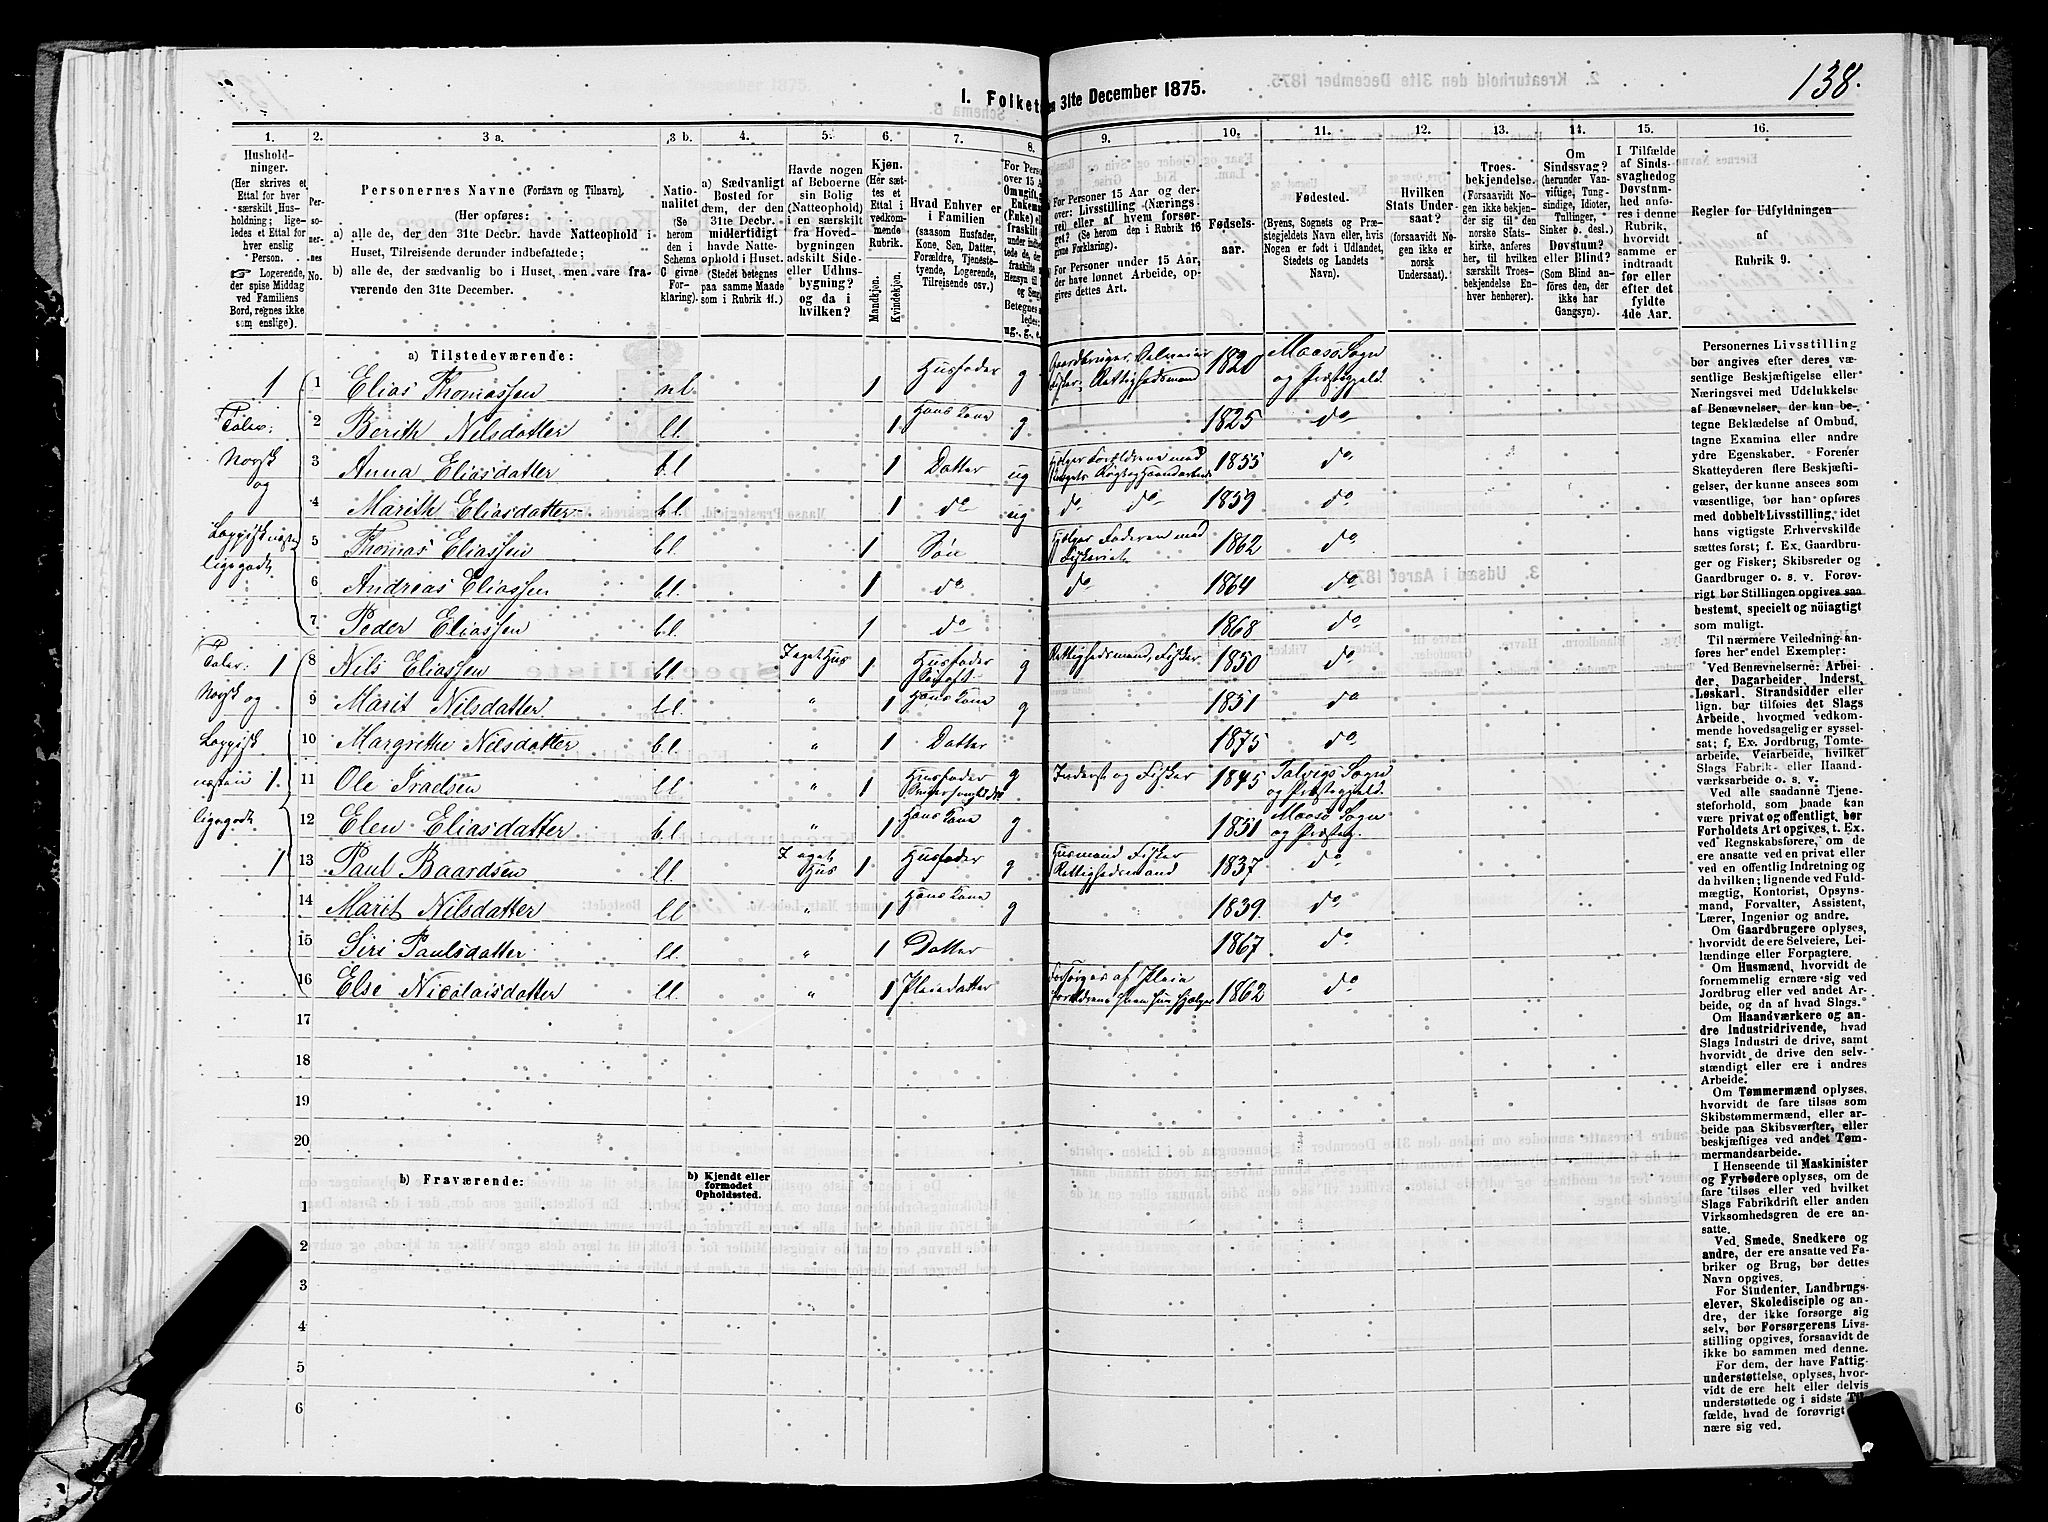 138.
I. Folket
n 31te December 1875.
1.
Husholdninger.
(Her skrives et
Ettal for hver
særskilt Husholdning;
ligeledes et Ettal for
hver enslig
Person.
☞ Logerende,
der spise Middag
ved Familiens
Bord, regnes ikke
som enslige).
2.
Personernes
No.
3 a.
Personernes Navne (Fornavn og Tilnavn),
(Her opføres:
a) alle de, der den 31te Decbr. havde Natteophold i
Huset, Tilreisende derunder indbefattede;
b) alle de, der sædvanlig bo i Huset, men vare fraværende den 31te December.
3 b.
Nationalitet
(Se
herom
den i
Schema
C givne
Forklaring).
4.
a) Sædvanligt
Bosted for
dem, der den
31te Decbr.
midlertidigt
havde Natteophold i Huset.
(Stedet betegnes
paa samme Maade
som i Rubrik 11.)
5.
Havde nogen
af Beboerne
sin Bolig
(Natteophold)
i en særskilt
fra Hovedbygningen
adskilt Side-
eller Udhusbygning?
og da i
hvilken?
6.
Kjøn.
(Her sættes et
Ettal i
vedkommende
Rubrik.
Mandkjøn.
Kvindekjøn.
7.
Hvad Enhver er
i Familien
(saasom Husfader,
Kone, Søn, Datter,
Forældre, Tjenestetyende, Logerende,
Tilreisende osv.)
8.
9.
For Personer 15 Aar og derover: Livsstilling (Næringsvei) eller af hvem forsørget? (Se herom den i Rubrik 16
givne Forklaring).
For Personer under 15 Aar,
der have lønnet Arbeide, opgives dettes Art.
10.
Fødselsaar.
11.
Fødested.
(Byens, Sognets og Præstegjeldets Navn eller, hvis
Nogen er født i Udlandet,
Stedets og Landets
Navn).
12.
Hvilken
Stats Undersaat?
(forsaavidt Nogen ikke er
norsk
Undersaat).
13.
Troesbekjendelse.
(Forsaavidt Nogen ikke bekjender sig til den
norske Statskirke, anføres
her, til hvilken
særskilt Troesbekjendelse Enhver henhører).
14.
Om
Sindssvag?
(herunder Vanvittige, Tungsindige, Idioter,
Tullinger,
Sinker o. desl.)
Døvstum?
eller Blind?
(Som Blind anføres den, der ikke har
Gangsyn).
15.
I Tilfælde
af Sindssvaghed og
Døvstumhed anføres i denne
Rubrik,
hvorvidt
samme er
indtraadt
før eller
efter det
fyldte
4de Aar.
16.
Regler for Udfyldningen
af
Rubrik 9.
a) Tilstedeværende:
1 1 Elias Thomassen nl. 1 Husfader g Gaardbruger, Selveier Fisker, Rettighedsmand 1820 Maasø Sogn og Præstegjeld.
Taler: 2 Berith Nilsdatter ll. 1 Hans Kone g 1825 do
Norsk og 3 Anna Eliasdatter b.l 1 Datter ug Hjælper Forældrene med 1855 do
4 Marith Eliasdatter b.l. 1 do ug do do 1859 do
Lappisk næsten 5 Thomas Eliassen b.l. 1 Søn Hjælper Faderen med Fiskeriet 1862 do
ligegodt 6 Andreas Eliassen b.l. 1 do do 1864 do
7 Peder Eliassen b.l. 1 do 1868 do
Taler: 1 8 Nils Eliassen bl. I eget Hus 1 Husfader g Rettighedsmand, Fisker 1850 do
Norsk og 9 Marit Nilsdatter l.l. " 1 Hans Kone g 1851 do
Lappisk 10 Margrethe Nilsdatter b.l. " 1 Datter 1875 do
næsten 1. 11 Ole Iradsen ll " 1 Husfader g Inderst og Fisker 1845 Talvigs Sogn og Præstegjeld.
ligegodt 12 Elen Eliasdatter b.l. " 1 Hans Kone g 1851 Maasø Sogn og Præsteg.
1 13 Paul Baardsen ll. I eget Hus 1 Husfader g Husmand Fisker Rettighedsmand 1837 do
14 Marit Nilsdatter ll " 1 Hans Kone g 1839. do
15 Siri Paulsdatter ll. " 1 Datter 1867 do
16 Else Nicolaisdatter ll. " 1 Pleiedatter Forsørges af Pleieforældrene som hun hjælper 1862 do
17
18
19
20
b) Fraværende:
b) Kjendt eller
formodet
Opholdssted.
1
2
3
4
5
6
Personernes Livsstilling
bør angives efter deres væsentlige Beskjæftigelse eller
Næringsvei med Udelukkelse
af Benævnelser, der kun betegne Beklædelse af Ombud,
tagne Examina eller andre
ydre Egenskaber. Forener
Skatteyderen flere Beskjæftigelser, der kunne ansees som
væsentlige, bør han opføres
med dobbelt Livsstilling, idet
hans vigtigste Erhvervskilde
sættes først; f. Ex. Gaardbruger og Fisker; Skibsreder og
Gaardbruger o. s. v. Forøvrigt bør Stillingen opgives saa
bestemt, specielt og nöiagtigt
som muligt.
Til nærmere Veiledning anføres her endel Exempler:
Ved Benævnelserne: Arbeider, Dagarbeider, Inderst,
Løskarl, Strandsidder eller
lign. bør tilføies det Slags
Arbeide, hvormed vedkommende hovedsagelig er sysselsat; f. Ex. Jordbrug, Tomtearbeide, Veiarbeide, hvilket
Slags Fabrik- eller Haandværksarbeide o. s. v.
Ved alle saadanne Tjenesteforhold, som baade kan
være privat og offentligt, bør
Forholdets Art opgives, t. Ex.
ved Regnskabsførere, om de
ere ansatte ved en privat eller
ved en offentlig Indretning og
da hvilken; lignende ved Fuldmægtig, Kontorist, Opsynsmand, Forvalter, Assistent,
Lærer, Ingeniør og andre.
Om Gaardbrugere oplyses,
hvorvidt de ere Selveiere, Leilændinge eller Forpagtere.
Om Husmænd, hvorvidt de
fornemmelig ernære sig ved
Jordbrug eller ved andet Arbeide, og da af hvad Slags.
Om Haandværkere og andre Industridrivende, hvad
Slags Industri de drive, samt
hvorvidt de drive den selvstændigt eller ere i andres
Arbeide.
Om Tømmermænd oplyses,
hvorvidt de fare tilsøs som
Skibstømmermænd, eller arbeide paa Skibsværfter, eller
beskjæftiges ved andet Tømmermandsarbeide.
I Henseende til Maskinister
og Fyrbødere oplyses, om de
fare tilsøs eller ved hvilket
Slags Fabrikdrift eller anden
Virksomhedsgren de ere ansatte.
Ved Smede, Snedkere og
andre, der ere ansatte ved Fabriker og Brug, bør dettes
Navn opgives.
For Studenter, Landbrugselever, Skoledisciple og andre, der ikke forsørge sig
selv, bør Forsørgerens Livsstilling opgives, forsaavidt de
ikke bo sammen med denne.
For dem, der have Fattigunderstøttelse, oplyses, hvorvidt de ere helt eller delvis
understøttede og i sidste Tilfælde, hvad de forøvrigt ernære sig ved.